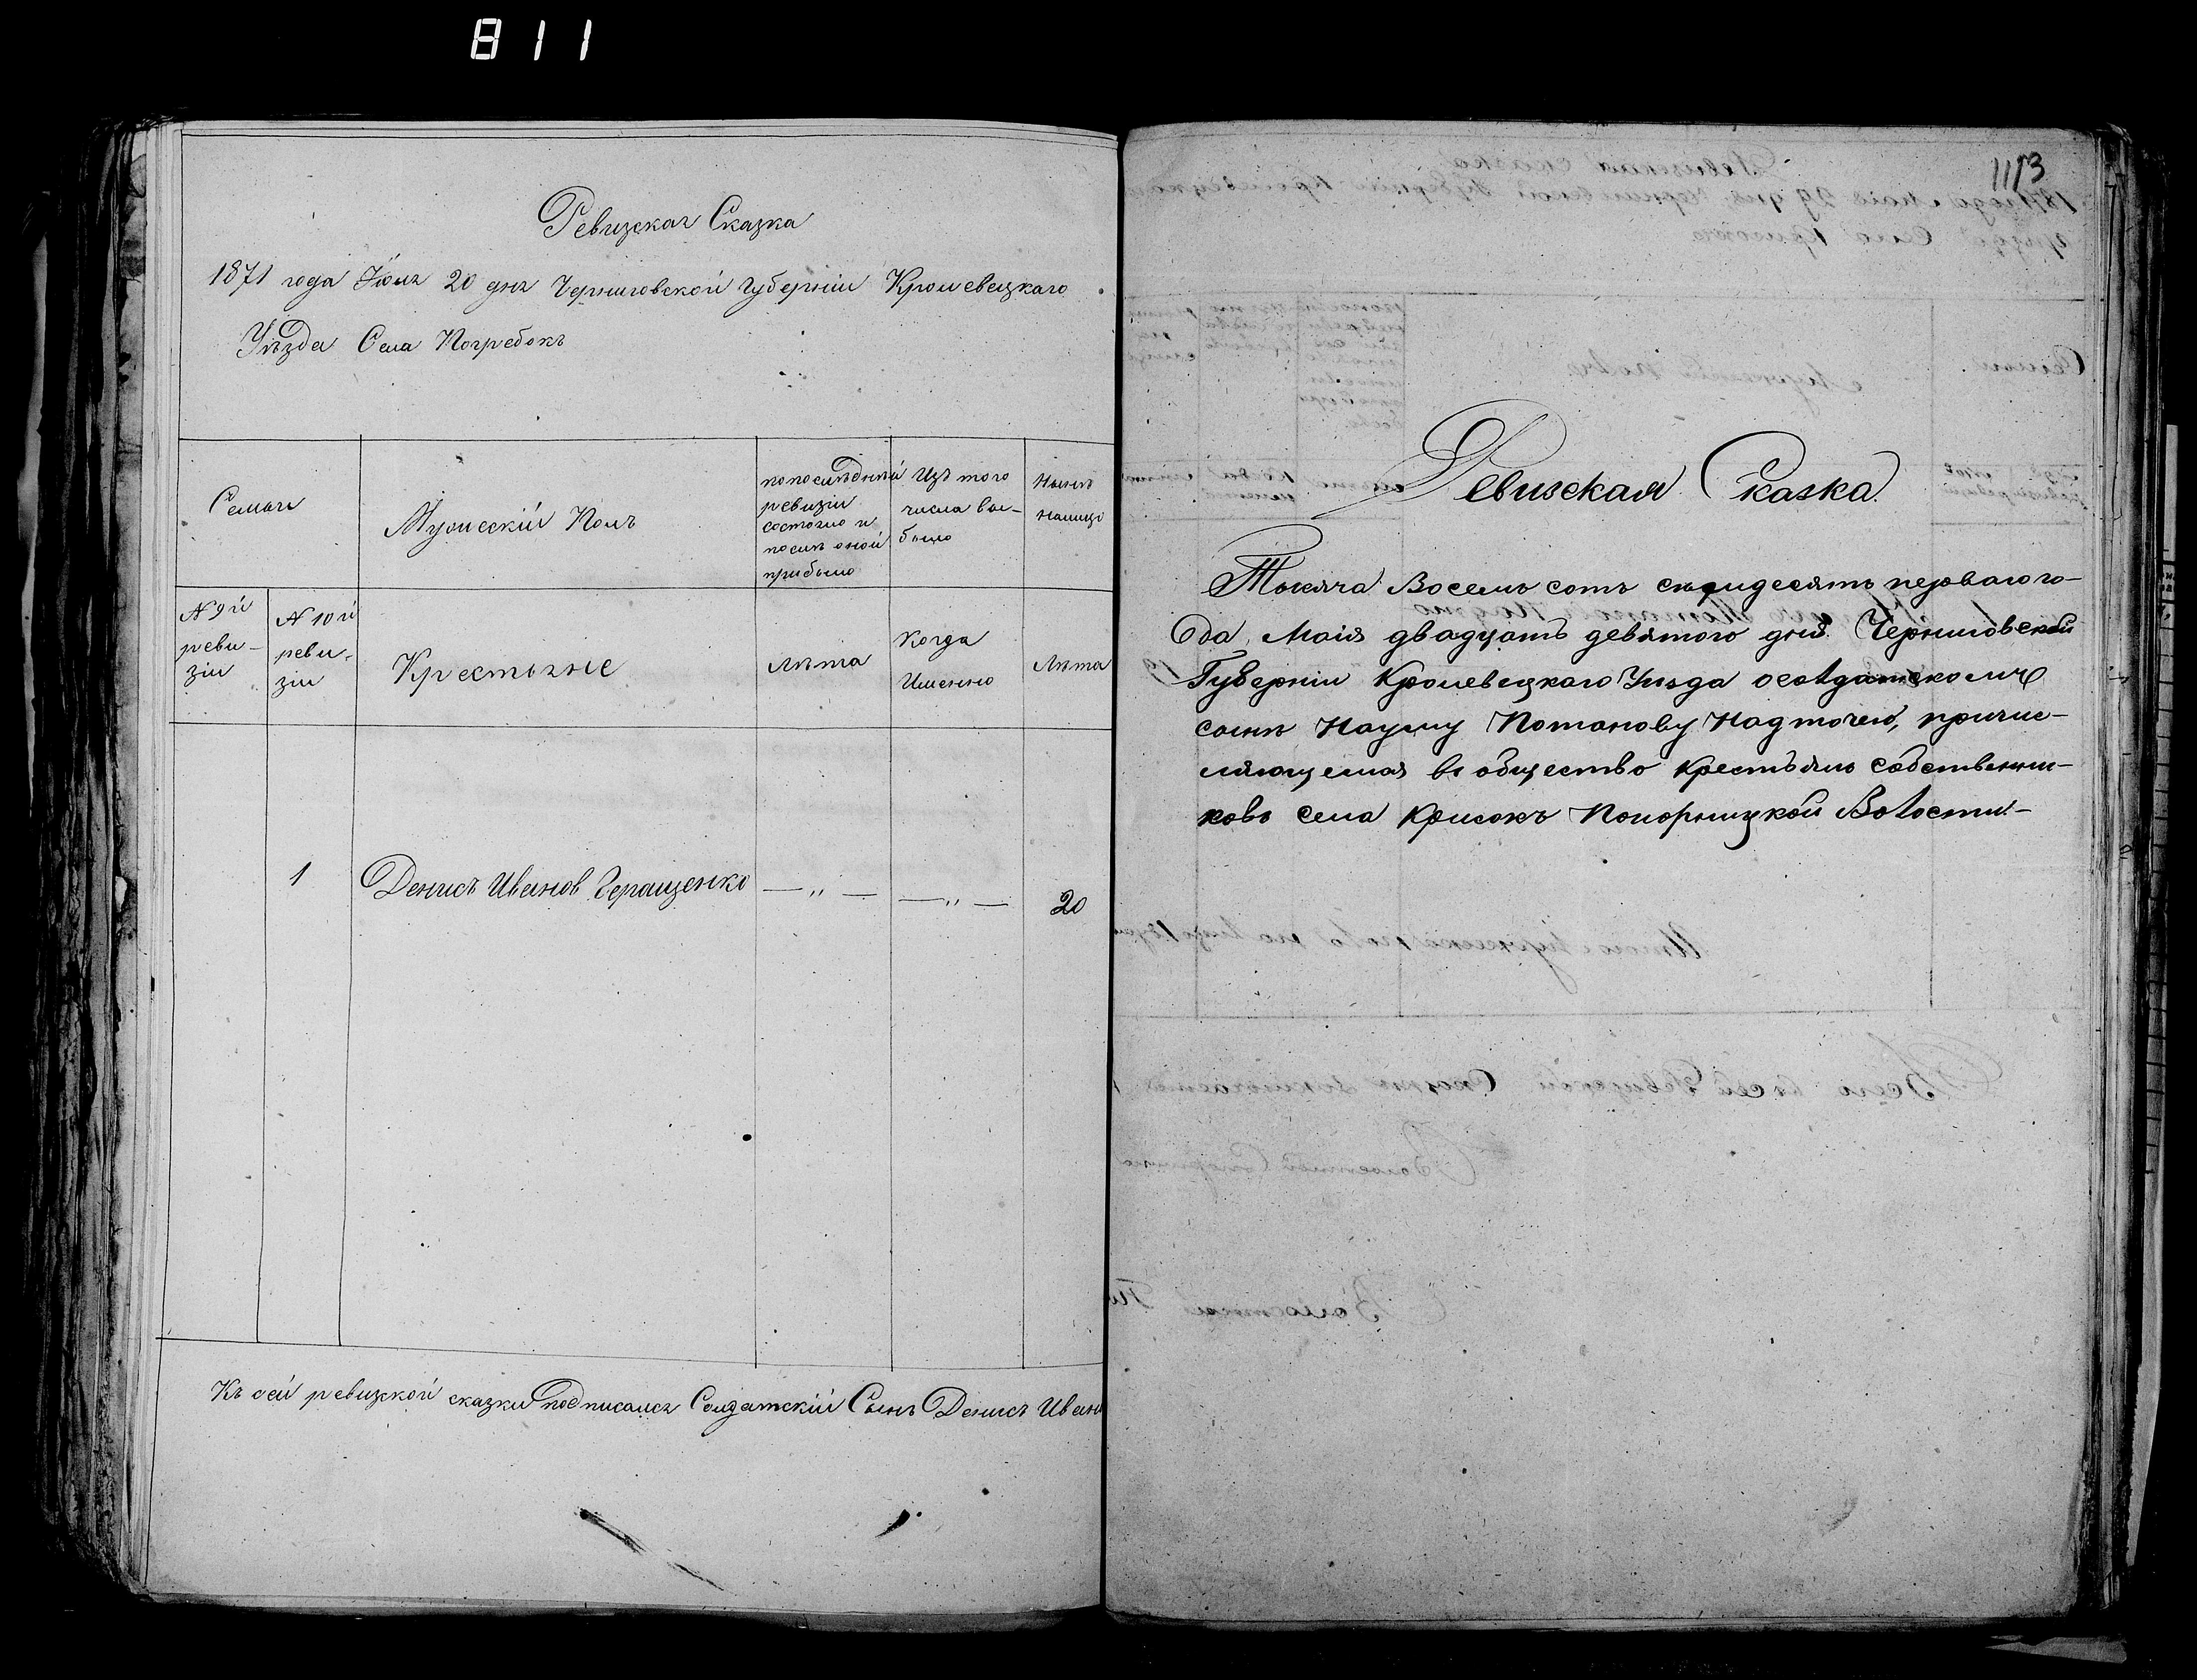 811
Ревизская Сказка
1871 года Июля 20 дня Черниговской Губерніи Кролевецкаго
Уѣзда Села Погребокъ
Семьи
Мужескій Полъ
попослѣдней
ревизіи
состояло и
послѣ оной
прибыло
Изъ того
числа вы-
было
Нынѣ
налицо
№ 9й
реви-
зіи
№ 10й
реви-
зіи
Крестьяне
Лѣта
Когда
Именно
Лѣта
1 Денисъ Иванов Геращенко — „ — — „ — 20
Къ сей ревизской сказки подписался Солдатскій Сынъ Денисъ Иван
1113
Ревизская Сказка.
Тысяча Восемь сотъ семидесятъ перваго го-
да, Маія двадцать девятого дня Черниговской
Губерніи Кролевецкаго Уѣзда о солдатскомъ
сынѣ Науму Потапову Надточею, причис-
ляющемся въ общество крестьянъ собственни-
ковъ села Крисокъ Понорницкой Волости.—